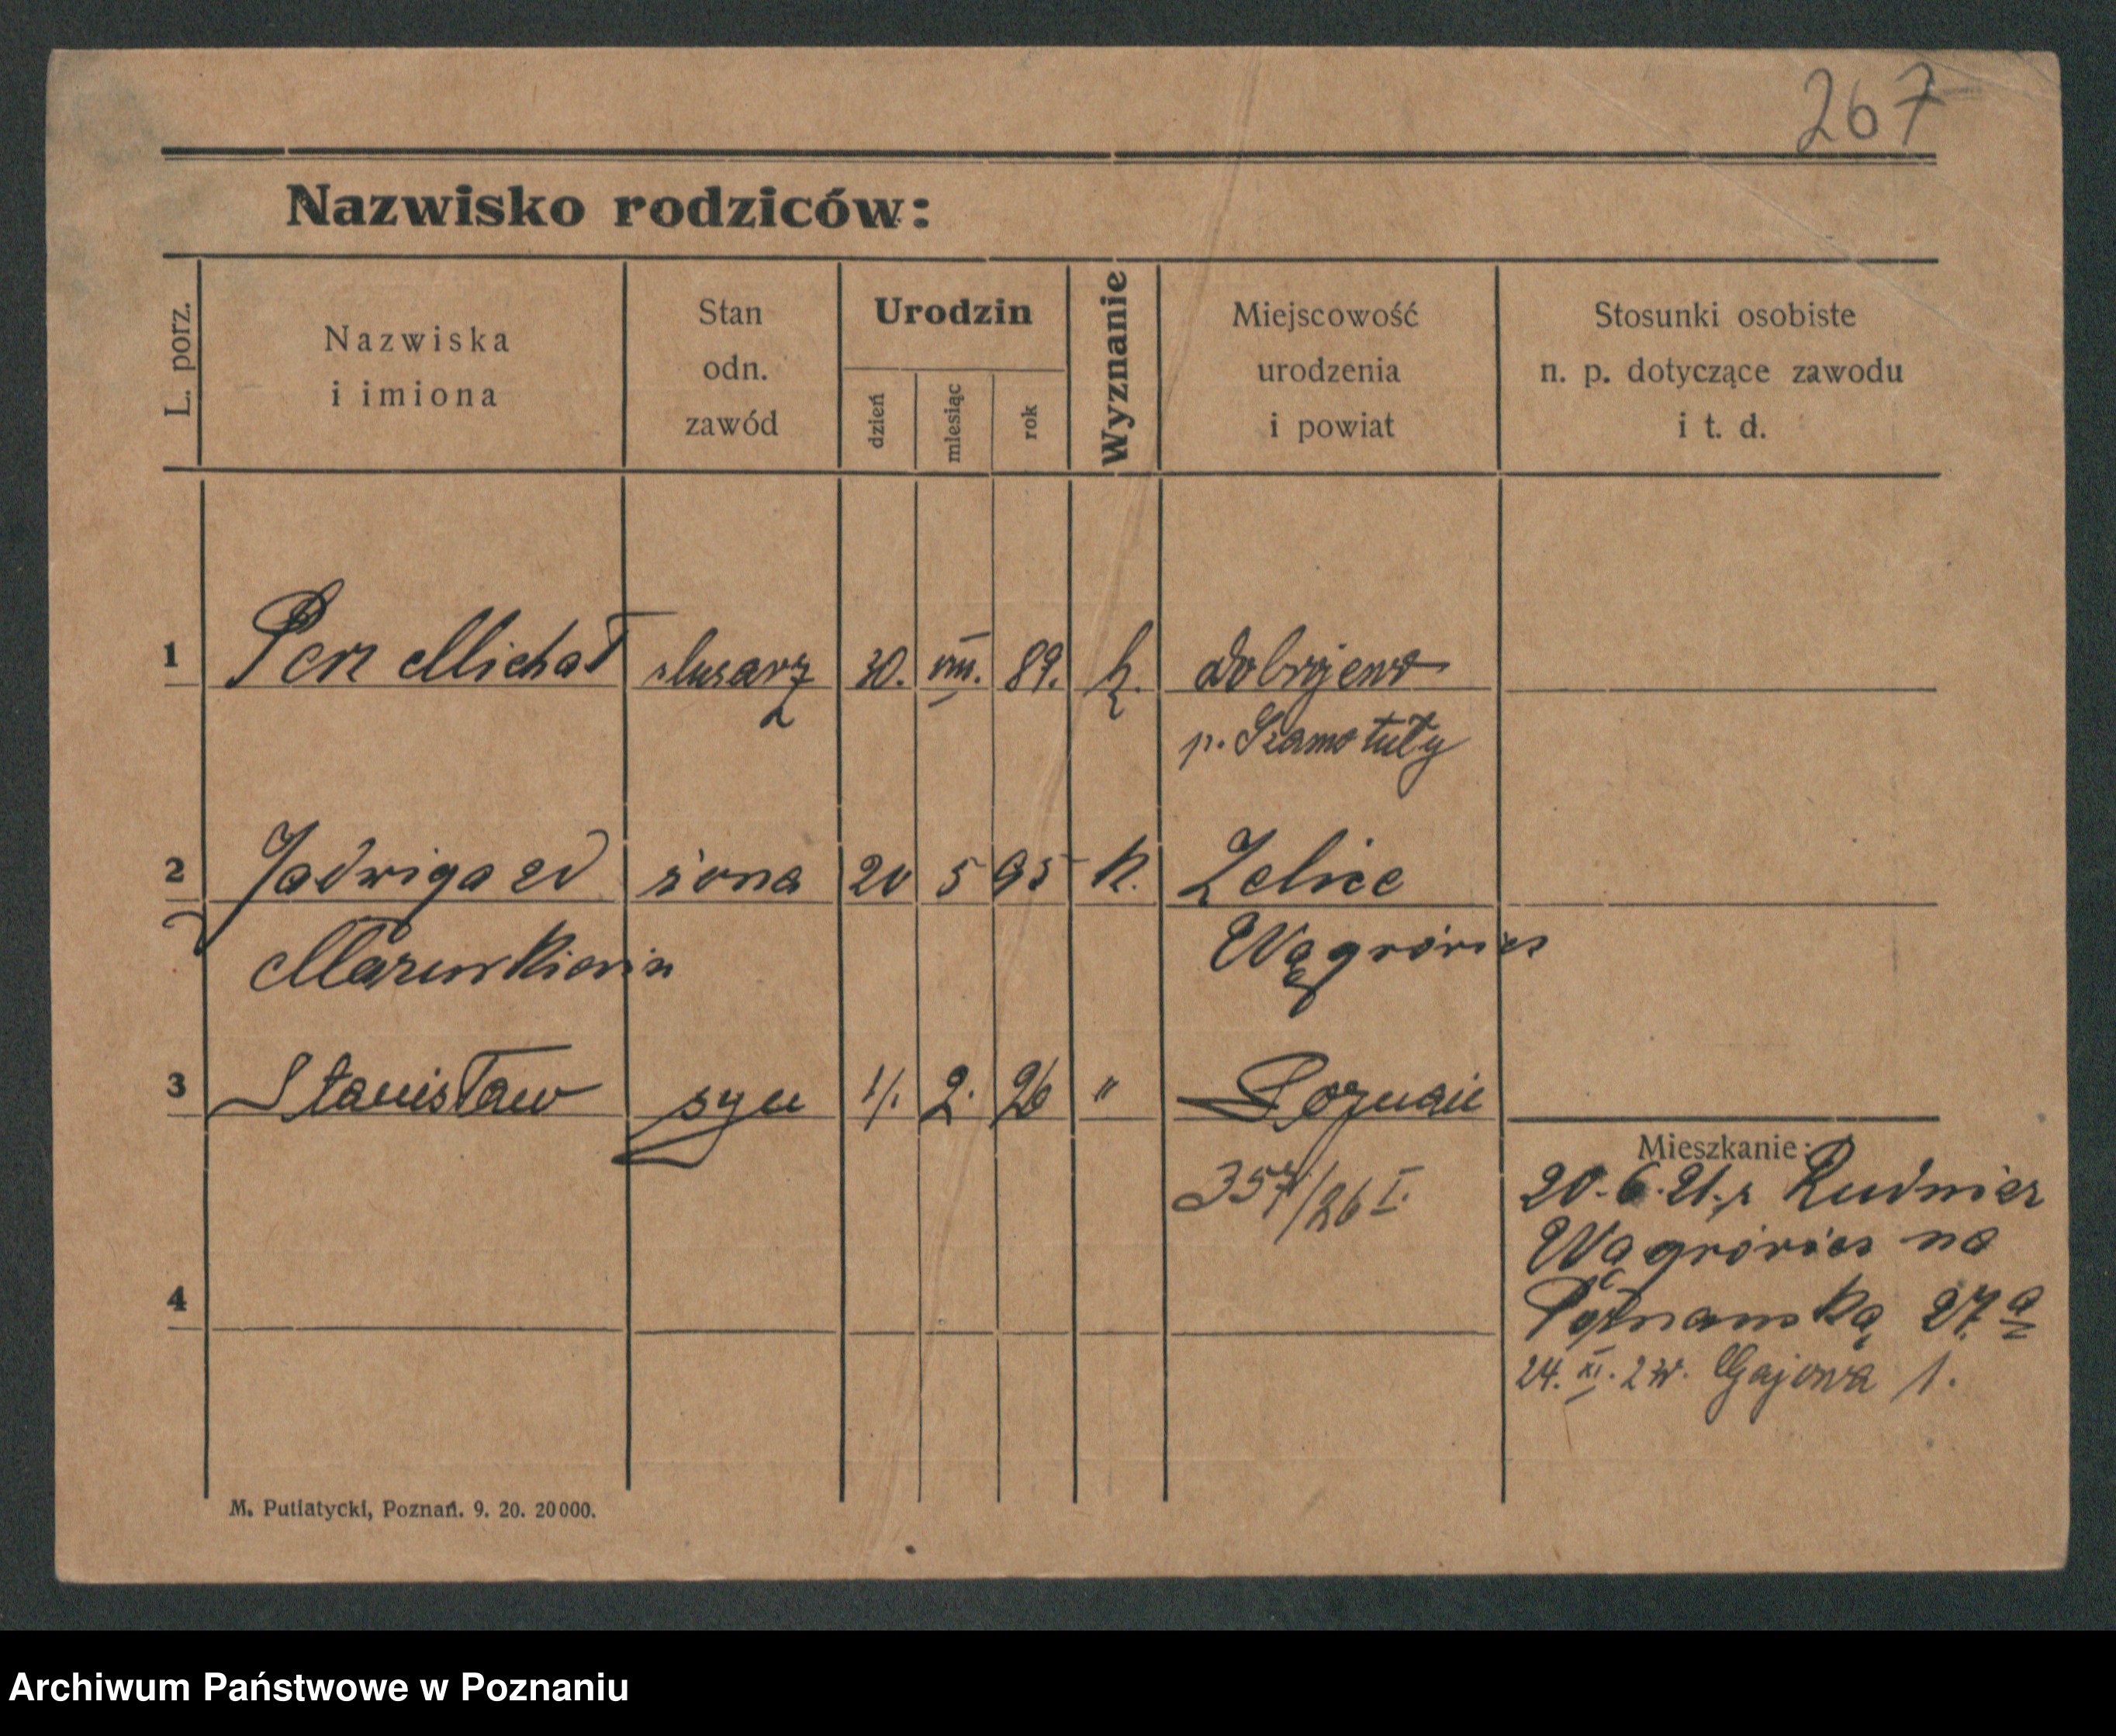 267
Nazwisko rodziców:
L. porz.
Nazwiska
i imiona
Stan
odn.
zawód
Urodzin
dzień
miesiąc
rok
Wyznanie
Miejscowość
urodzenia
i powiat
Stosunki osobiste
n. p. dotyczące zawodu
i t. d.
1 Michał slusarz 30. VIII. 89. k. Dobrojewo
p. Szamotuły
2 Jadwiga żona 20 5 95 k. Zelice
Wągrówiec
3 Stanisław syn 1/. 2. 26 " Poznań
357/26 I.
Mieszkanie:
20. 6. 21. Rudnicz
Wągrówiec na
Poznanską 27. a
24. XI. Gajowa 1.
4
M. Putiatycki, Poznań. 9. 20. 20000.
Archiwum Państwowe w Poznaniu